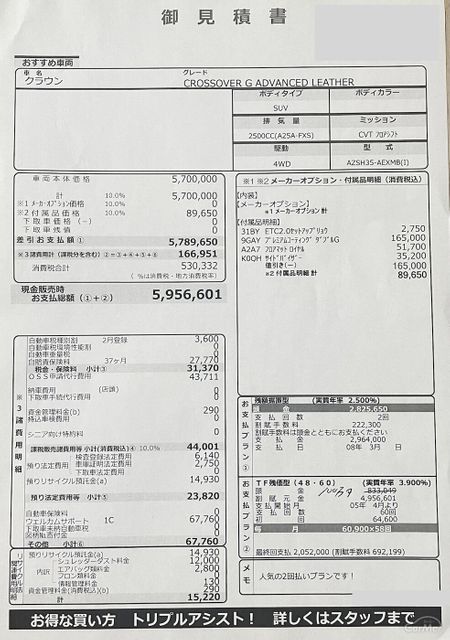 御見積書
おすすめ車両
車名 グレード
クラウン CROSSOVER G ADVANCED LEATHER
ボディタイプ ボディカラー
SUV
排気量 ミッション
2500CC(A25A-FXS) CVT フロアシフト
駆動 型式
4WD AZSH35-AEXMB(I)
車両本体価格 5,700,000
計 10.0% 5,700,000
※1メーカーオプション価格 10.0% 0
※2付属品価格 10.0% 89,650
下取車価格(-) 0
下取車残債 0
差引お支払額① 5,789,650
※3諸費用計(課税分を含む)②=③+④+⑤+⑥ 166,951
消費税合計 530,332
(%は消費税・地方消費税率)
現金販売時
お支払総額(①+②) 5,956,601
※1※2メーカーオプション・付属品明細(消費税込)
【内装】
【メーカーオプション】
※1メーカーオプション計
【付属品明細】
31BY ETC2.0セットアップリョウ 2,750
9GAY プレミアムコーティング ダブルG 165,000
A2A7 フロアマット ロイヤル 51,700
K0QH サイドバイザー 35,200
値引き(-) 165,000
※2付属品明細計 89,650
※3諸費用明細
自動車税種別割 2月登録 3,600
自動車税環境性能割 0
自動車重量税 0
自賠責保険料 37ヶ月 27,770
税金・保険料 小計③ 31,370
OSS申請代行費用 43,711
納車費用 (店頭) 0
下取車手続代行費用 0
資金管理料金(b) 290
持込車検費用 0
シニア向け特約料 0
課税販売諸費用等 小計(消費税込)④ 10.0% 44,001
預り法定費用 検査登録法定費用 6,140
車庫証明法定費用 2,750
下取車法定費用 0
預りリサイクル預託金(a) 14,930
預り法定費用等 小計⑤ 23,820
自動車保険料 0
ウェルカムサポート 1C 67,760
下取車未納自動車税 0
図柄軽減寄付金 0
その他 小計⑥ 67,760
預りリサイクル預託金(a) 14,930
内訳 シュレッダーダスト料金 12,000
エアバッグ類料金 2,800
フロン類料金 0
情報管理料金 130
資金管理料金(消費税込)(b) 290
計 15,220
お支払プラン①
残額据置型 (実質年率 2.500%)
頭金 2,825,650
支払回数 2回
割賦手数料 222,300
割賦手数料は頭金とともにお支払ください
支払金 2,964,000
支払日 08年 3月 日
お支払プラン②
TF残価型(48・60) (実質年率 3.900%)
頭金 833,049
割賦元金 4,956,601
支払開始月 05年 4月より
支払回数 60回
初回 64,600
毎月 60,900×58回
最終回支払 2,052,000 (割賦手数料 692,199)
メモ
人気の2回払いプランです!
お得な買い方 トリプルアシスト! 詳しくはスタッフまで